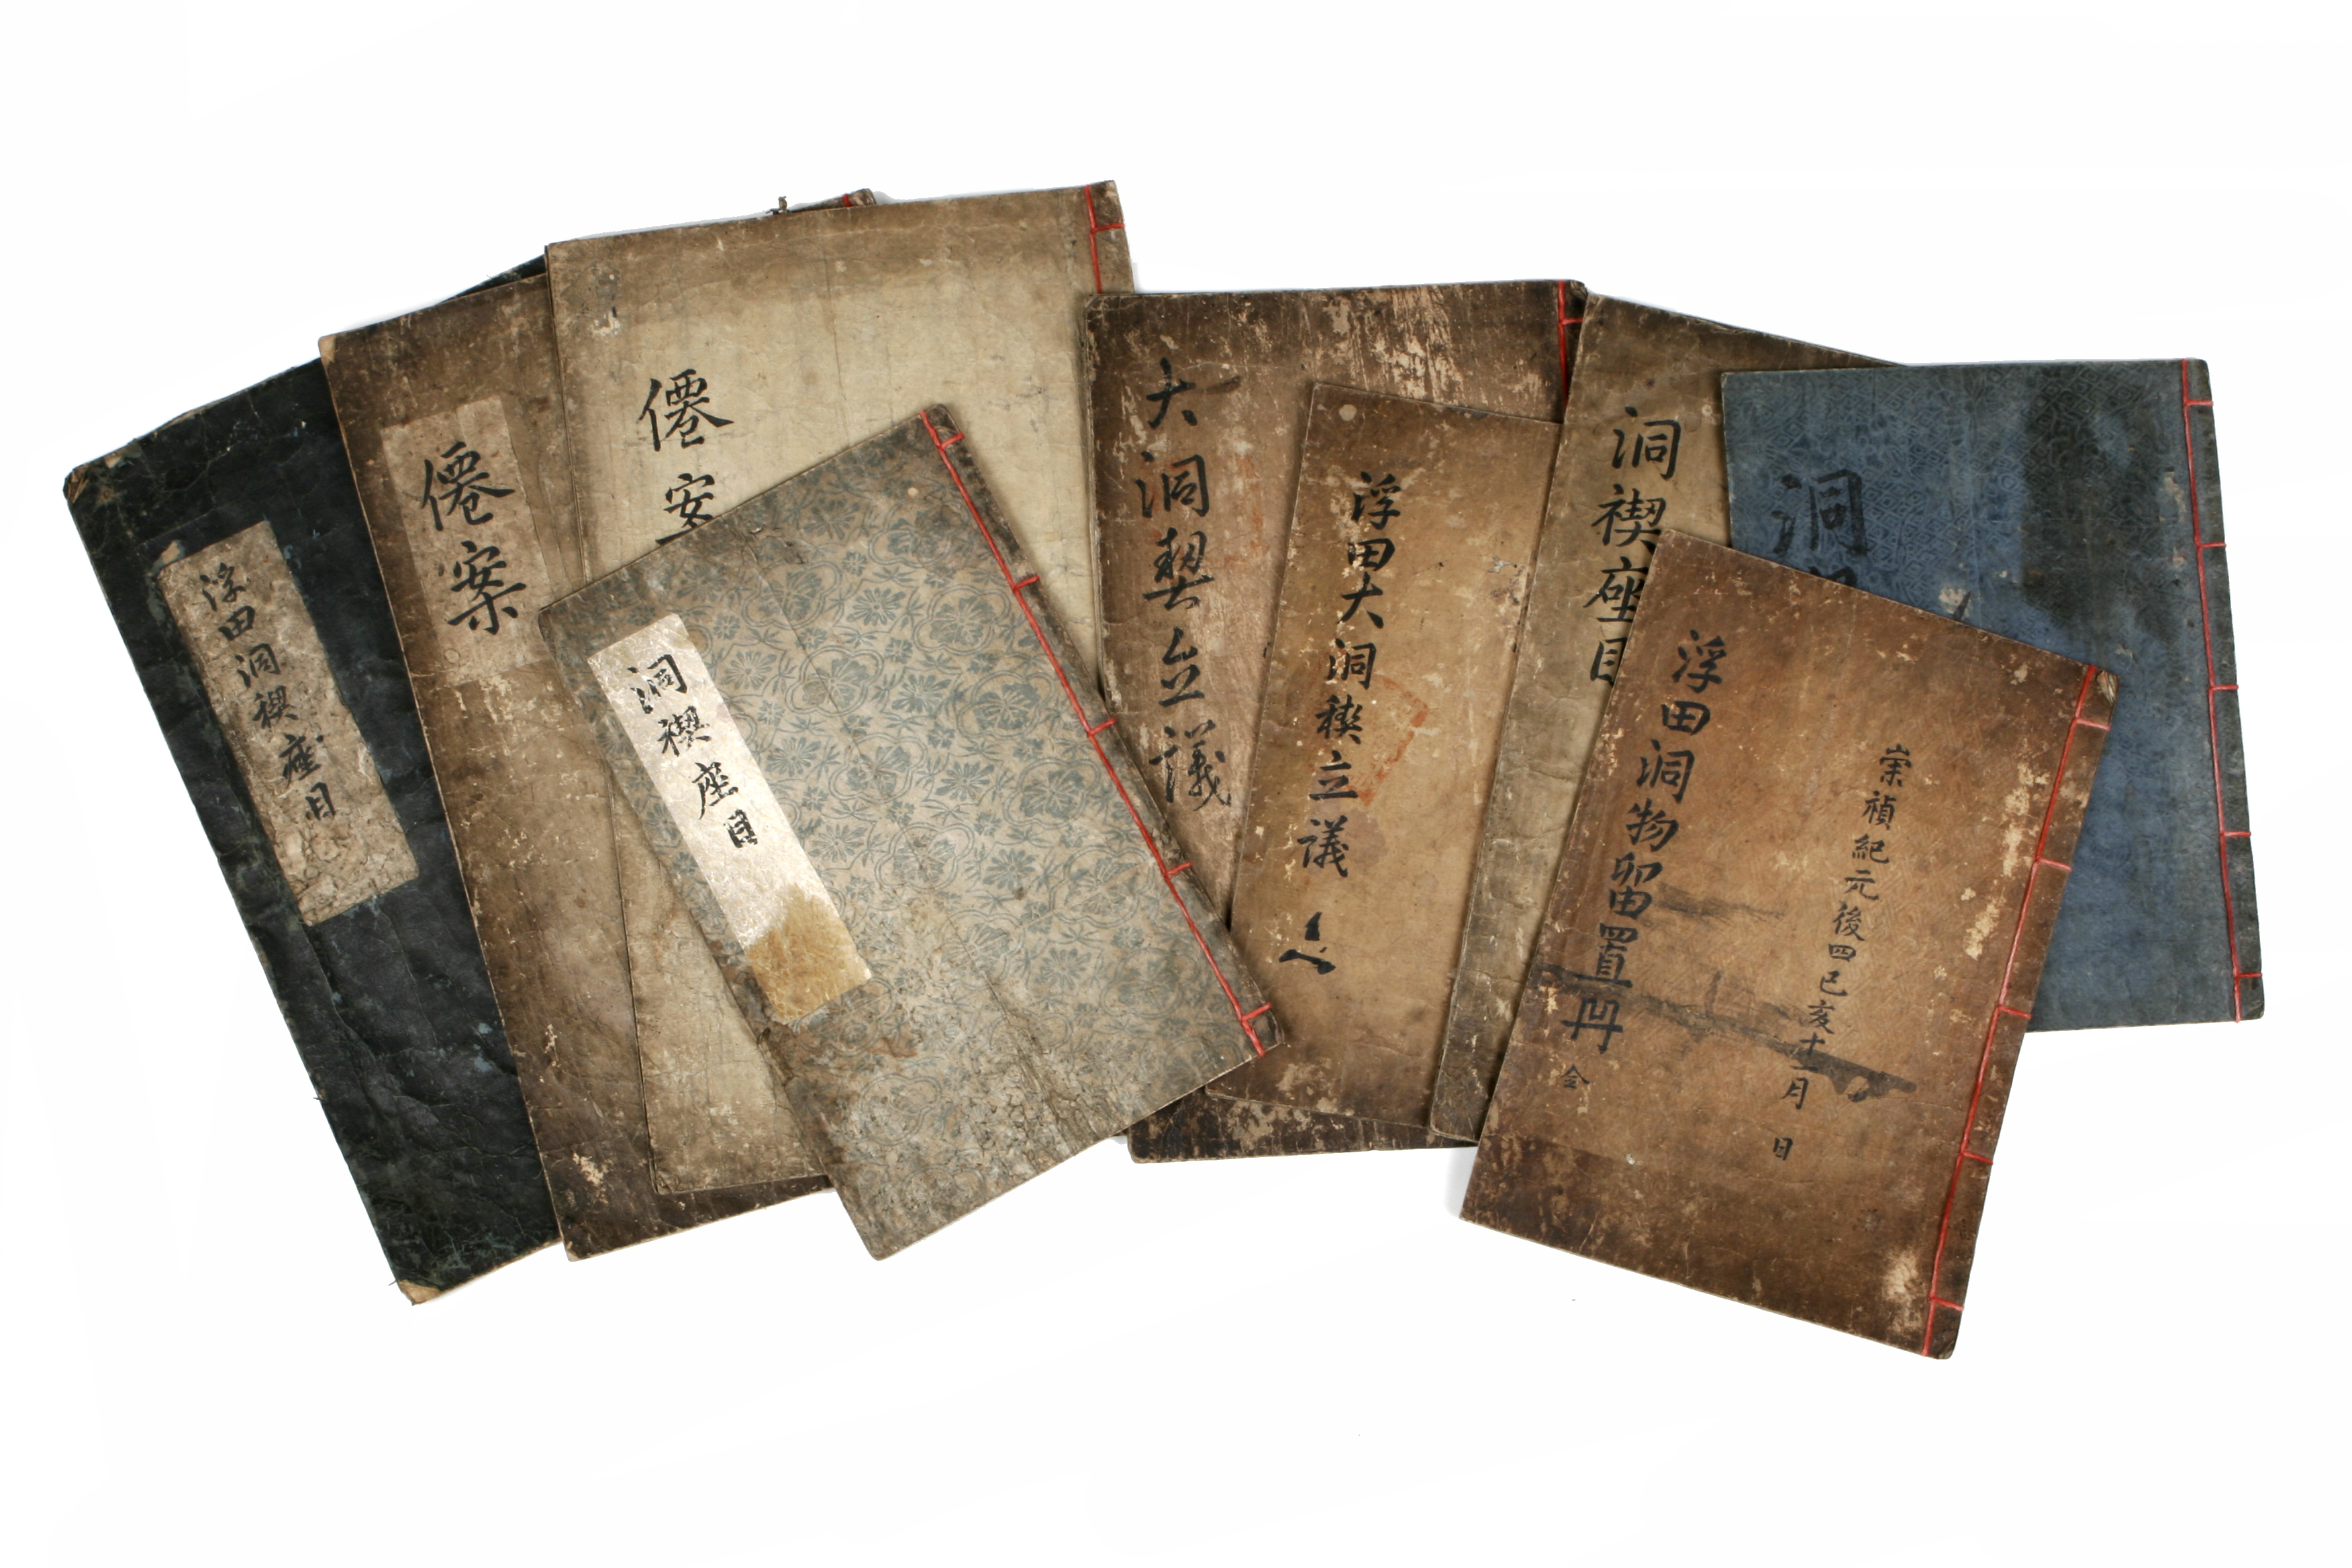 浮田洞稧座目
僊案
僊案
洞禊座目
大洞契立議
浮田大洞稧立議
洞禊座目
洞
浮田洞物留置冊 仝
崇禎紀元後四己亥十二月 日